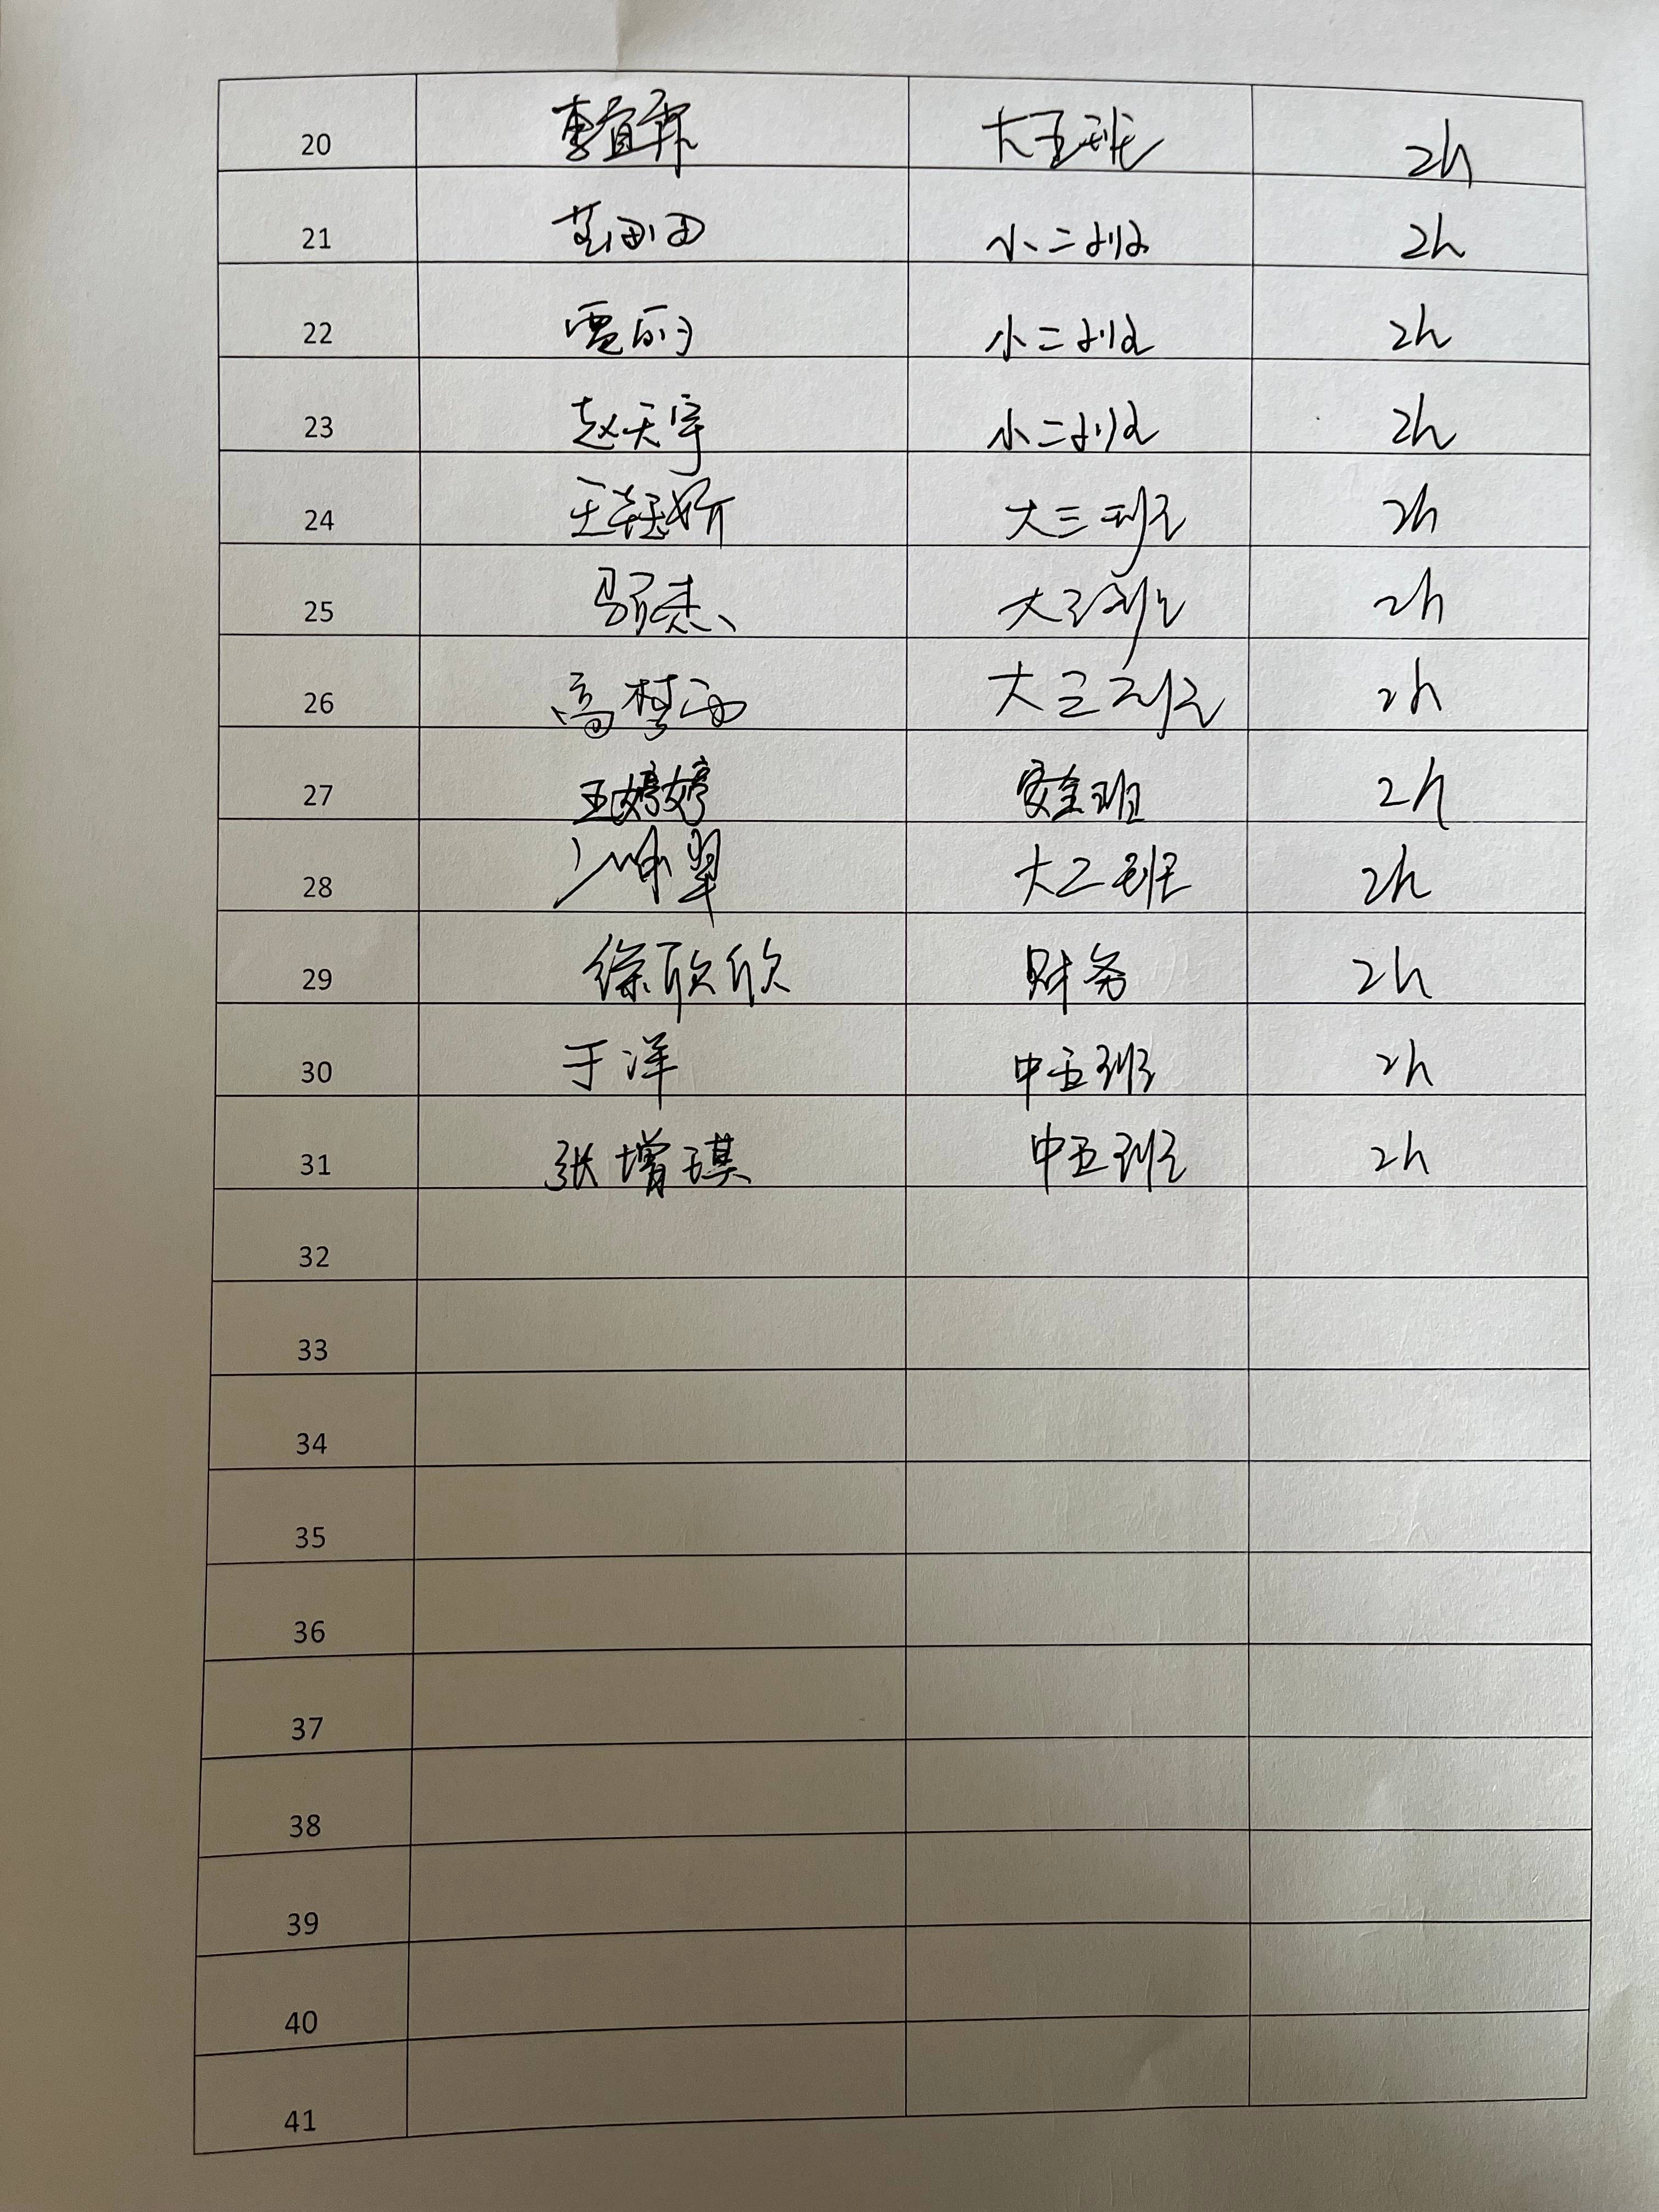 20 大五班 2h
21 小二班 2h
22 小二班 2h
23 赵天宇 小二班 2h
24 大三班 2h
25 大三班 2h
26 高梦 大三班 2h
27 王婷婷 安全班 2h
28 大二班 2h
29 徐欣欣 财务 2h
30 于洋 中五班 2h
31 张增琪 中五班 2h
32
33
34
35
36
37
38
39
40
41